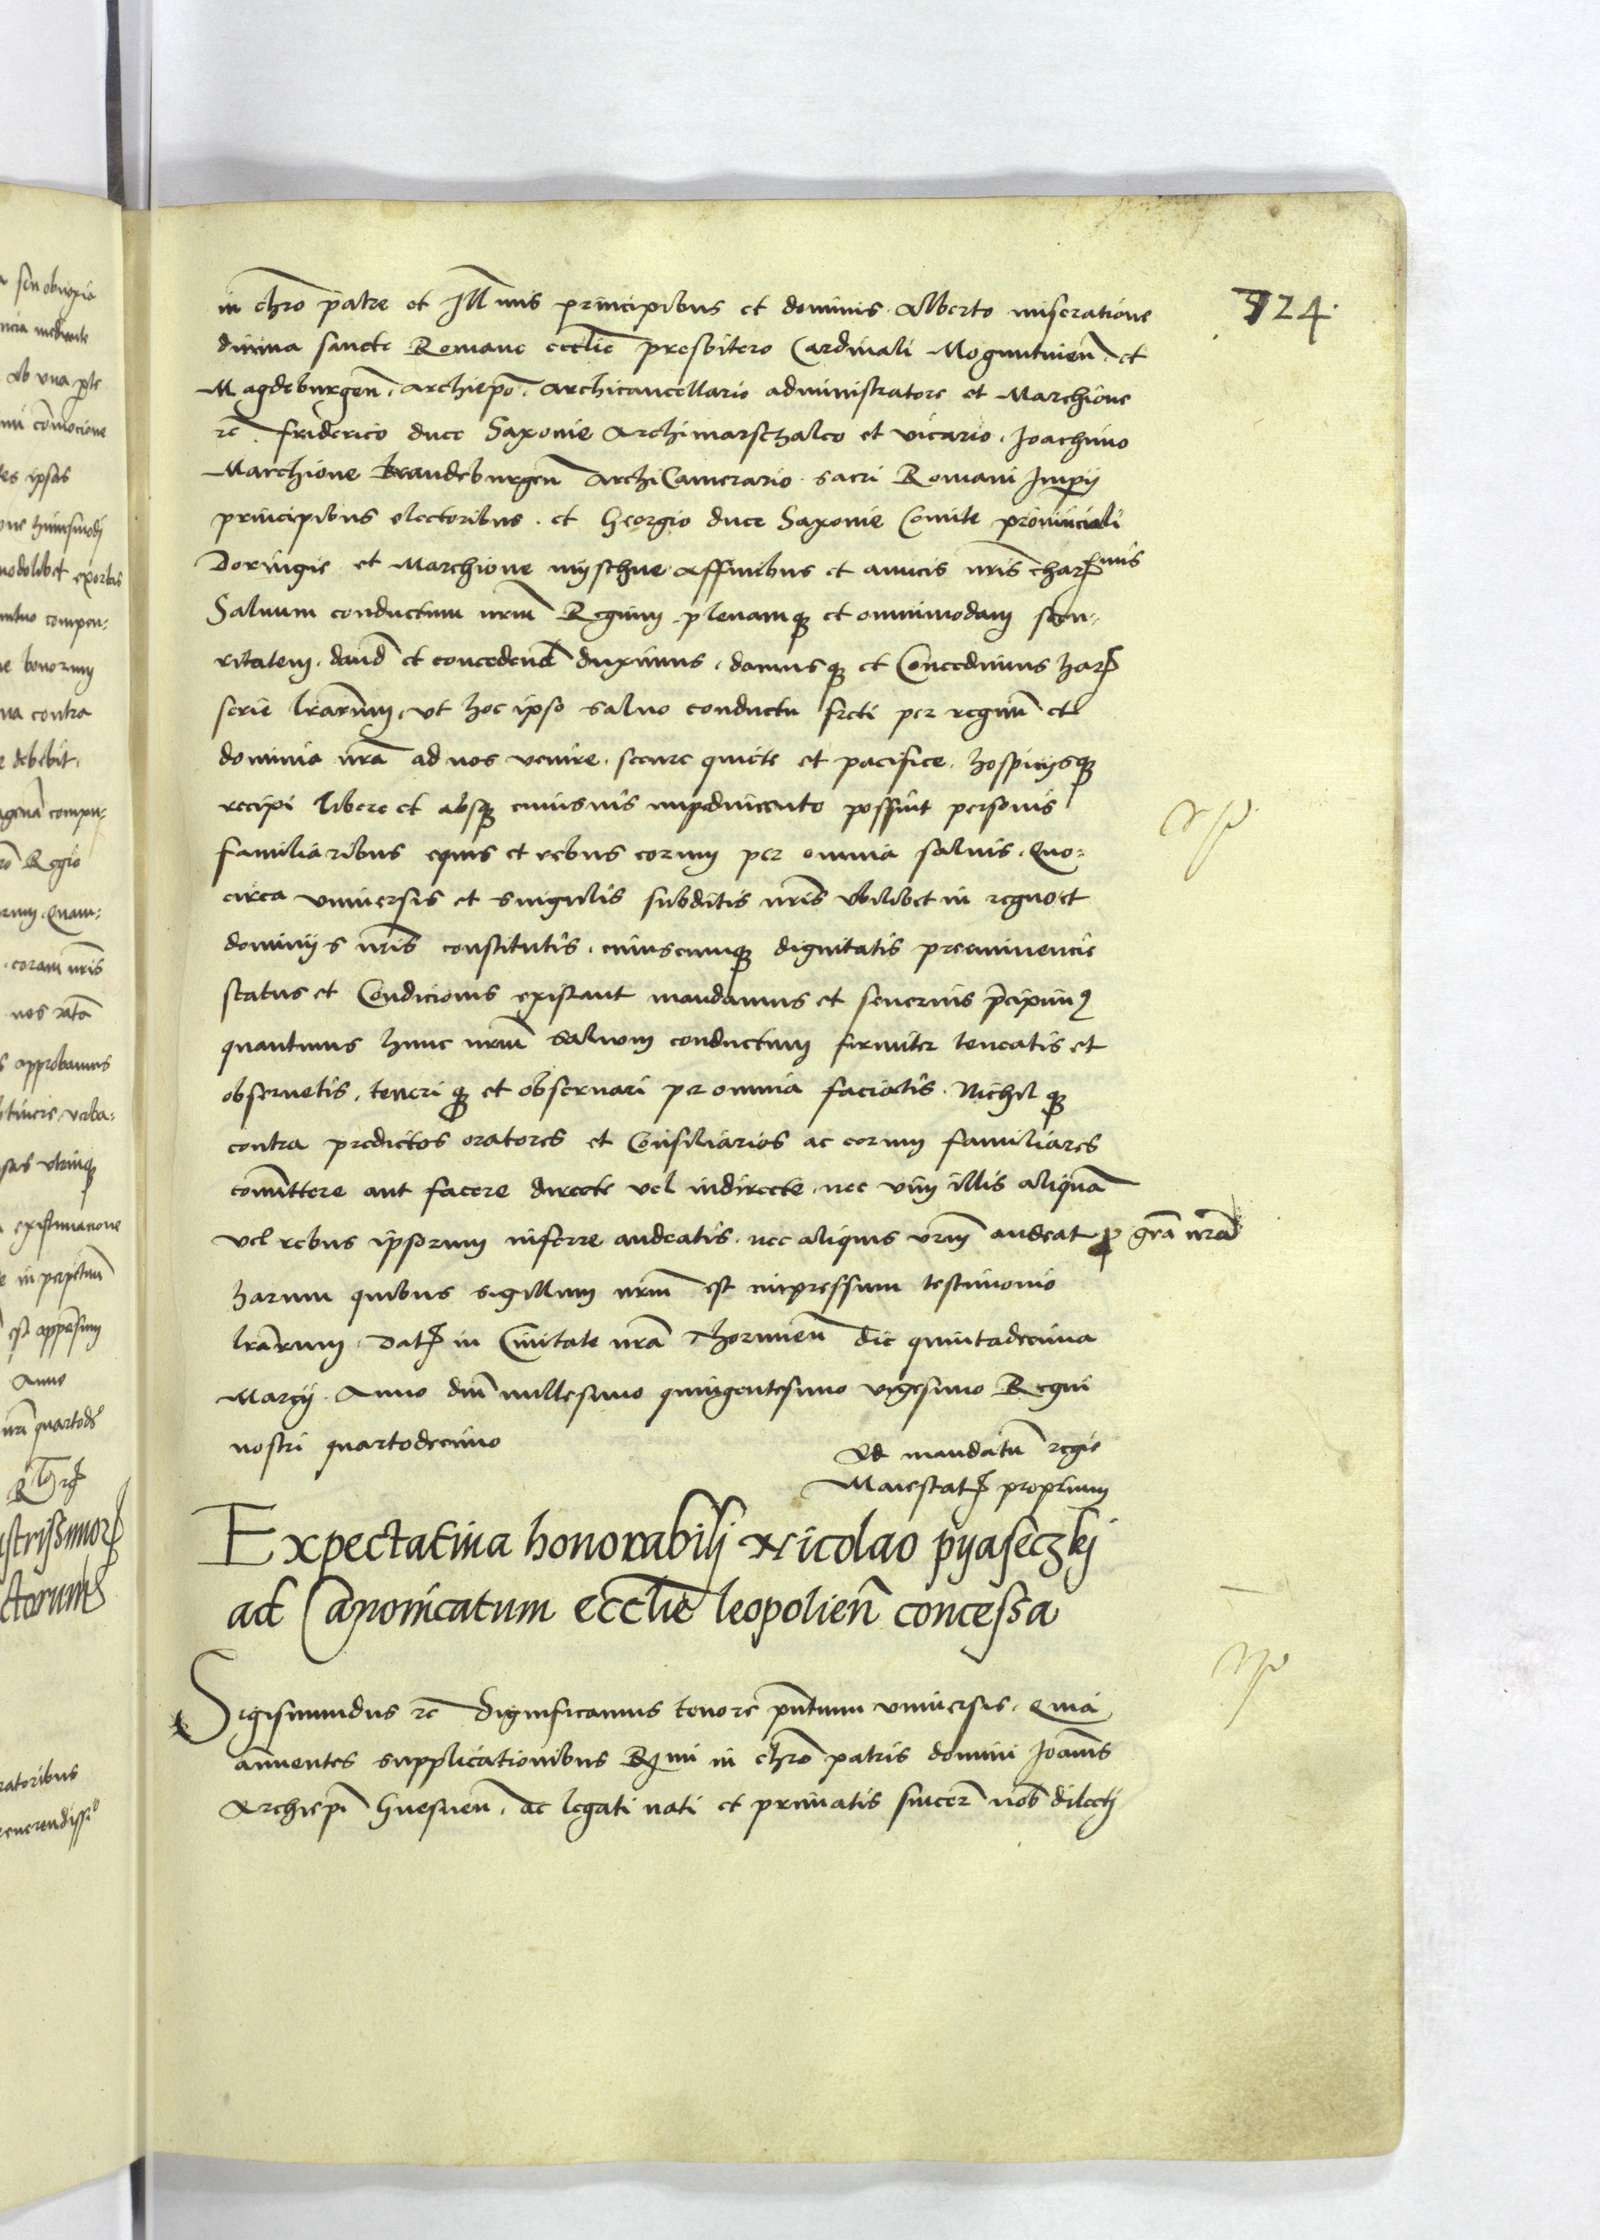 924.
in chro patre et Illmis principibus et dominis Alberto miseratione
diuina sancte Romane ecclie presbitero Cardinali Moguntinen et
Magdeburgen Archiepo Archicancellario administratore et Marchione
rc Friderico duce Saxonie Archimarschalco et vicario Joachimo
Marchione Brandeburgen Archi Camerario sacri Romani Impij
principibus electoribus et Georgio duce Saxonie Comite prouinciali
Doringie et Marchione myschne Affinibus et amicis nris charmis
Saluum conductum nrm Regium plenamque et omnimodam secu-
ritatem dand et concedend duximus damusque et Concedimus har
serie lrarum vt hoc ipso saluo conductu freti per regnum et
dominia nra ad nos venire secure quiete et pacifice hospicijsque
recipi libere et absque cuiusuis impedimento possint personis
familiaribus equis et rebus eorum per omnia saluis Quo-
circa vniuersis et singulis subditis nris vbilibet in regno et
dominijs nris constitutis cuiuscunque dignitatis preeminencie
status et Condicionis existant mandamus et seuerius precipimus
quatinus hunc nrm saluum conductum firmiter teneatis et
obseruetis teneri que et obseruari per omnia faciatis Nichil que
contra predictos oratores et Consiliarios ac eorum familiares
comittere aut facere directe vel indirecte nec vim illis aliqua
vel rebus ipsorum inferre audeatis nec aliquis vrm audeat p gra nra
harum quibus sigillum nrm est impressum testimonio
lrarum Dat in Ciuitate nra Thorunien die quintadecima
Marcij Anno dni millesimo quingentesimo vigesimo Regni
nostri quartodecimo
Ad mandatu regie
Maiestat proprium
Expectatiua honorabilj Nicolao pyaseczkj
ad Canonicatum ecclie leopolien concessa
Sigismundus rc Significamus tenore pntium vniuersis Quia
annuentes supplicationibus Rmi in chro patris domini Joanis
Archiepi Gnesnen ac legati nati et primatis sincer nob dilectj